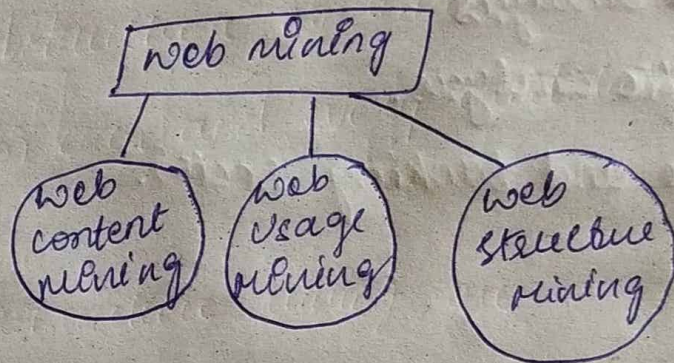 web mining
web
content
mining
web
usage
mining
web
structure
mining